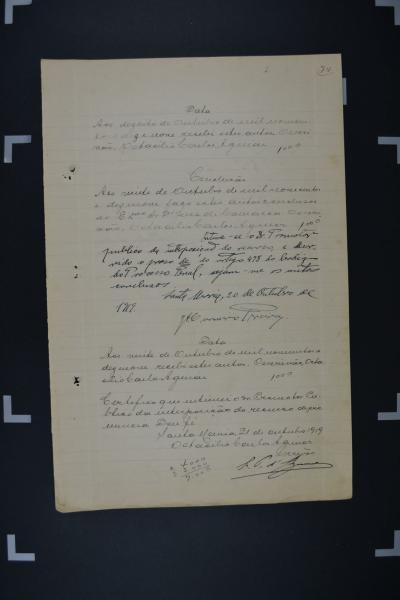 74
Data
Aos dezoito de Outubro de mil novecen-
tos e dezenove recebi estes autos. O escri-
vão, Octacilio Carlos Aguiar
1000
Conclusão
Aos vinte de Outubro de mil novecentos
e dezenove faço estes autos conclusos
ao Dr. Juiz de Comarca. O escri-
vão, Octacilio Carlos Aguiar
1000
Intime-se o Dr. Promotor
publico da interposição do recurso, e decor-
rido o prazo do artigo 478 do Codigo
do Processo Penal, sejam-me os autos
conclusos.
Santa Maria, 20 de Outubro de
1919.
Data
Aos vinte de Outubro de mil novecentos e
dezenove recebi estes autos. O escrivão, Octa-
cilio Carlos Aguiar
1000
Certifico que intimei o Sr. Promotor Pu-
blico da interposição do recurso
Dou fé.
Santa Maria 21 de outubro 1919
Octacilio Carlos Aguiar
Escrivão